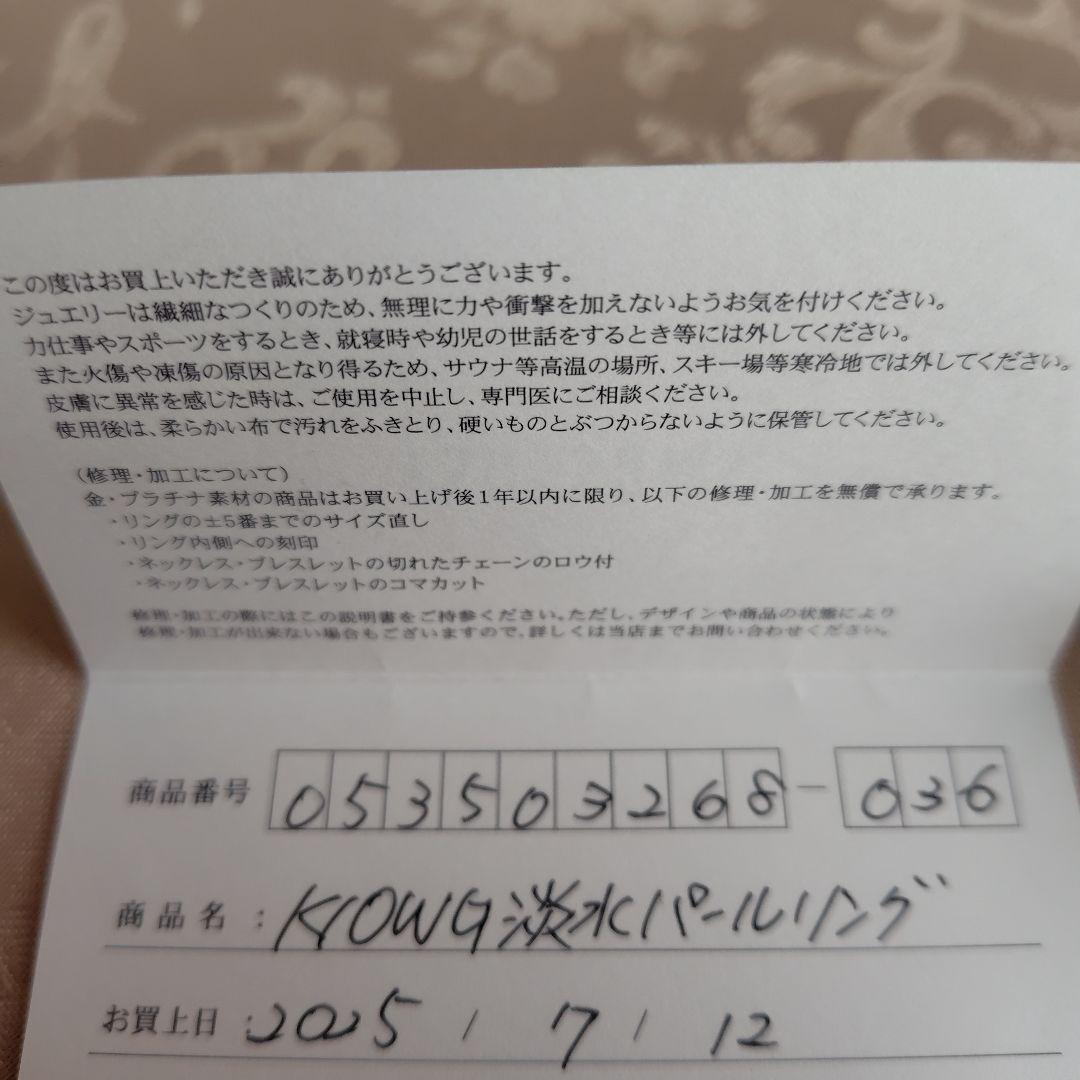 この度はお買上いただき誠にありがとうございます。
ジュエリーは繊細なつくりのため、無理に力や衝撃を加えないようお気を付けください。
力仕事やスポーツをするとき、就寝時や幼児の世話をするとき等には外してください。
また火傷や凍傷の原因となり得るため、サウナ等高温の場所、スキー場等寒冷地では外してください。
皮膚に異常を感じた時は、ご使用を中止し、専門医にご相談ください。
使用後は、柔らかい布で汚れをふきとり、硬いものとぶつからないように保管してください。
（修理・加工について）
金・プラチナ素材の商品はお買い上げ後1年以内に限り、以下の修理・加工を無償で承ります。
・リングの±5番までのサイズ直し
・リング内側への刻印
・ネックレス・ブレスレットの切れたチェーンのロウ付
・ネックレス・ブレスレットのコマカット
修理・加工の際にはこの説明書をご持参ください。ただし、デザインや商品の状態により
修理・加工が出来ない場合もございますので、詳しくは当店までお問い合わせください。
商品番号 053503268-036
商品名：K10WG淡水パールリング
お買上日：2025/7/12